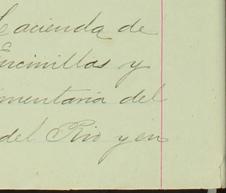 Hacienda de
Encinillas y
mentaria del
del Rio y en